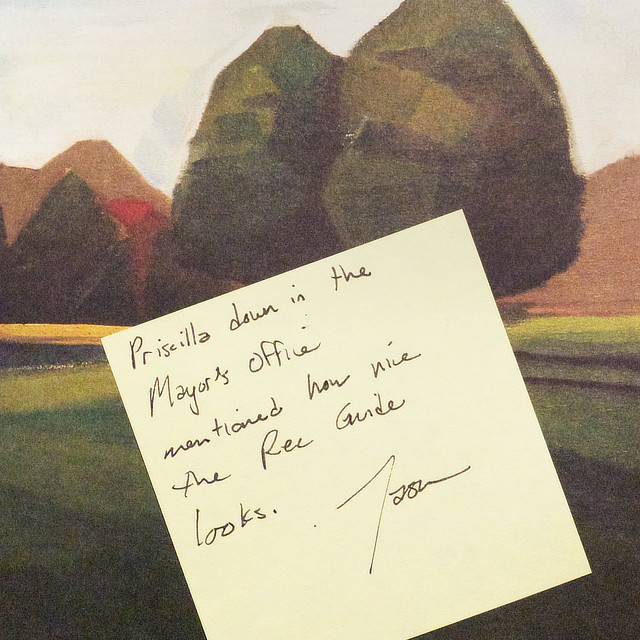 Priscilla down in the
Mayor's office
mentioned how nice
the Rec Guide
looks.
Jason